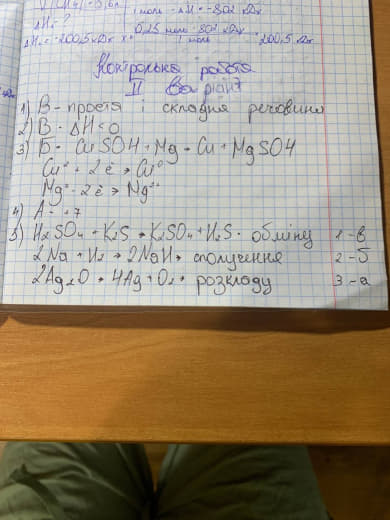 ΔH = ?
ΔH = -200,5 кДж
0,25 моль · 802 кДж
1 моль
200,5 кДж
Контрольна робота
II Варіант
1) В - проста і складна речовина
2) В - ΔH < 0
3) Б - CuSO4 + Mg → Cu + MgSO4
Cu²⁺ + 2ē → Cu⁰
Mg⁰ - 2ē → Mg²⁺
4) А - +7
5) H₂SO₄ + K₂S → K₂SO₄ + H₂S - обміну 1 - в
2Na + H₂ → 2NaH - сполучення 2 - б
2Ag₂O → 4Ag + O₂ - розкладу 3 - а